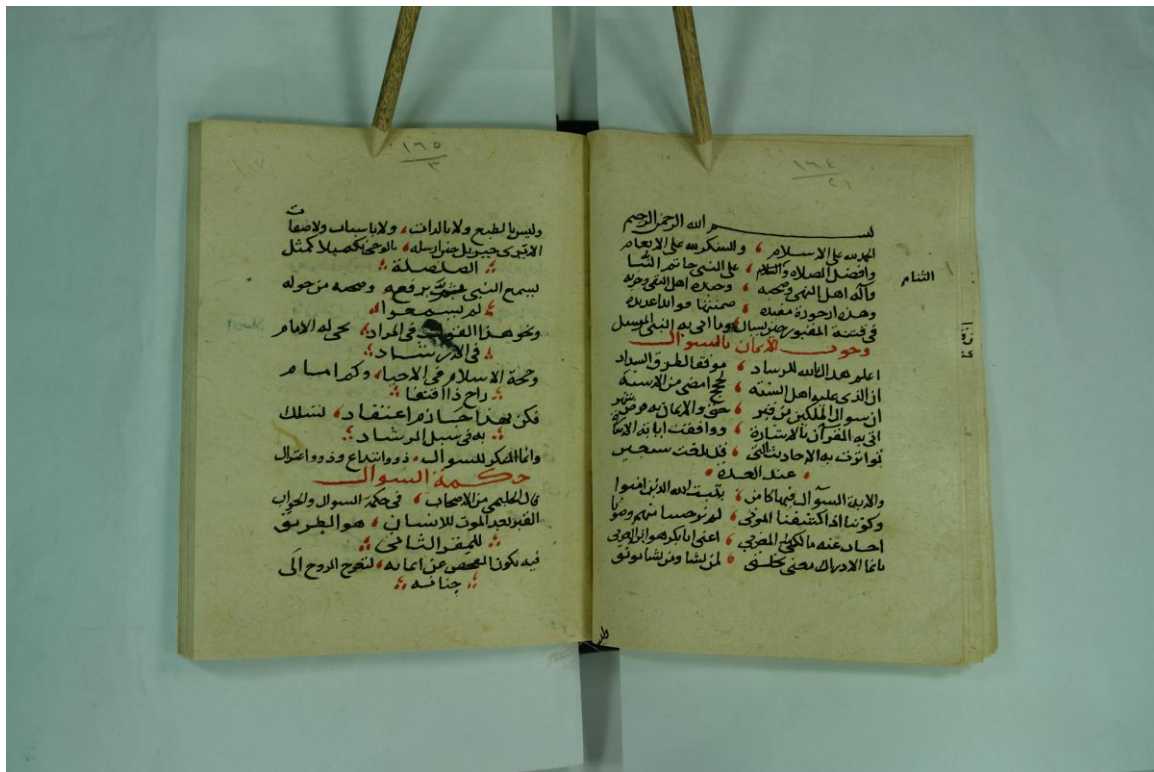 ١٦٤
٢
بسم الله الرحمن الرحيم
الحمد لله على الاسلام والشكر لله على الانعام
وافضل الصلاة والسلام على النبي خاتم
وآله اهل النهى وصحبه وحزبه اهل التقى وحزبه
وهذه ارجوزة مفيده ضمنتها فوائدا عديده
في فتنة المقبور حين يسأل وما اتى به النبي المرسل
وجوب الايمان بالسوال
اعلم هداك الله للرشاد موفقا لطرق السداد
ان الذي عليه اهل السنه
ان سوال الملكين من قبر حق والايمان به فرض
اتى به القرآن بالاشارة ووافقت
تواترت به الاحاديث التي قد بلغت سبعين
عند العدة
والاية السوال فيها كامن يثبت الله الذين امنوا
وكوننا اذا كشفنا الموتى لم نر حسا منهم وصوتا
اجاب عنه مالكي المغرب اعني ابا بكر هو ابن العربي
بانما الادراك معنى يخلق لمن يشا ومن يشا يوفق
وليس
١٦٥
٣
وليس بالطبع ولا بالذات ولا باسباب ولا صفات
الا ترى جبريل حين ارسله بالوحي تخييلا كمثل
الصلصلة
يسمع النبي يرفعه وصحبه من حوله
لم يسمعوا
ونحو هذا في المراد نحى له الامام
في الارشاد
وحجة الاسلام في الاحيا وكم امام
راح ذا اقتفا
فكن بهذا جازم اعتقاد لتسلك
به في سبيل الرشاد
وانما المنكر للسوال ذووا ابتداع وذووا اعتزال
حكمة السوال
قال الحليمي من الاصحاب في حكمة السوال والجواب
القبر بعد الموت للانسان هو الطريق
للمقر الثاني
فيه يكون الفحص عن ايمانه لتعرج الروح الى
جنانه